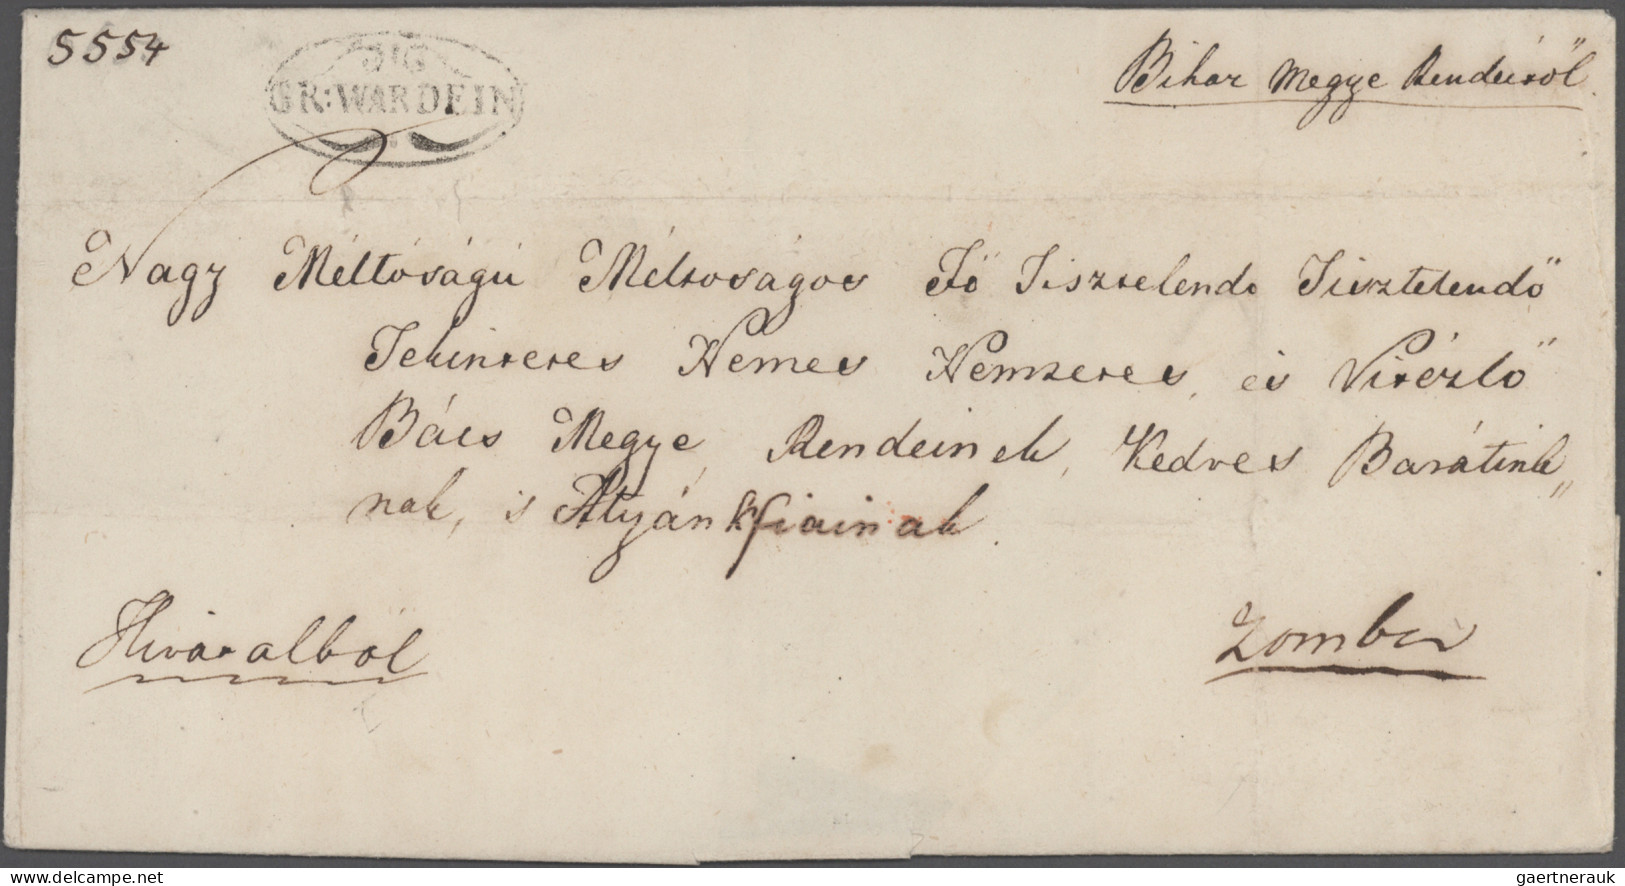 5554
GR:WARDEIN
Bihar Megye Rendeiről
Nagy Méltóságú Méltoságos Fő Tisztelendo Tisztelendő
Tekintetes Nemes Nemzetes, és Vitézlő
Bács Megye Rendeinek, Kedves Barátink
nak, 's Atyánkfiainak.
Hivatalból
Zombor
www.delcampe.net
gaertnerauk